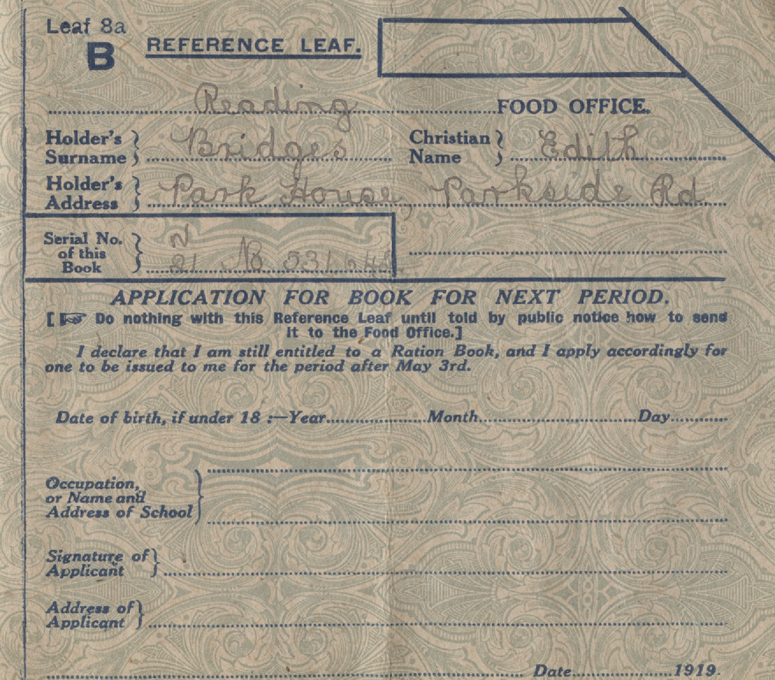 Leaf 8a
B REFERENCE LEAF.
Reading FOOD OFFICE.
Holder's Surname } Bridges Christian Name } Edith
Holder's Address } Park House, Parkside Rd.
Serial No. of this Book } N 21 No
APPLICATION FOR BOOK FOR NEXT PERIOD.
[☞ Do nothing with this Reference Leaf until told by public notice how to send
it to the Food Office.]
I declare that I am still entitled to a Ration Book, and I apply accordingly for
one to be issued to me for the period after May 3rd.
Date of birth, if under 18 :—Year............Month............Day............
Occupation,
or Name and
Address of School }
Signature of
Applicant }
Address of
Applicant }
Date............1919.